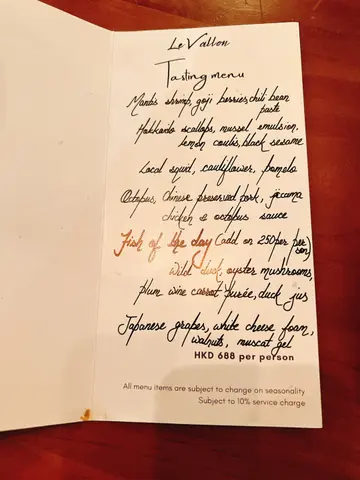 Le Vallon
Tasting menu
Mantis shrimp, goji berries, chili bean
paste
Hokkaido scallops, mussel emulsion,
lemon coulis, black sesame
Local squid, cauliflower, pomelo
Octopus, Chinese preserved pork, jicama
chicken & octopus sauce
Fish of the day (add on 250per per
son)
Wild duck, oyster mushrooms,
plum wine carrot purée, duck jus
Japanese grapes, white cheese foam,
walnuts, muscat gel
HKD 688 per person
All menu items are subject to change on seasonality
Subject to 10% service charge